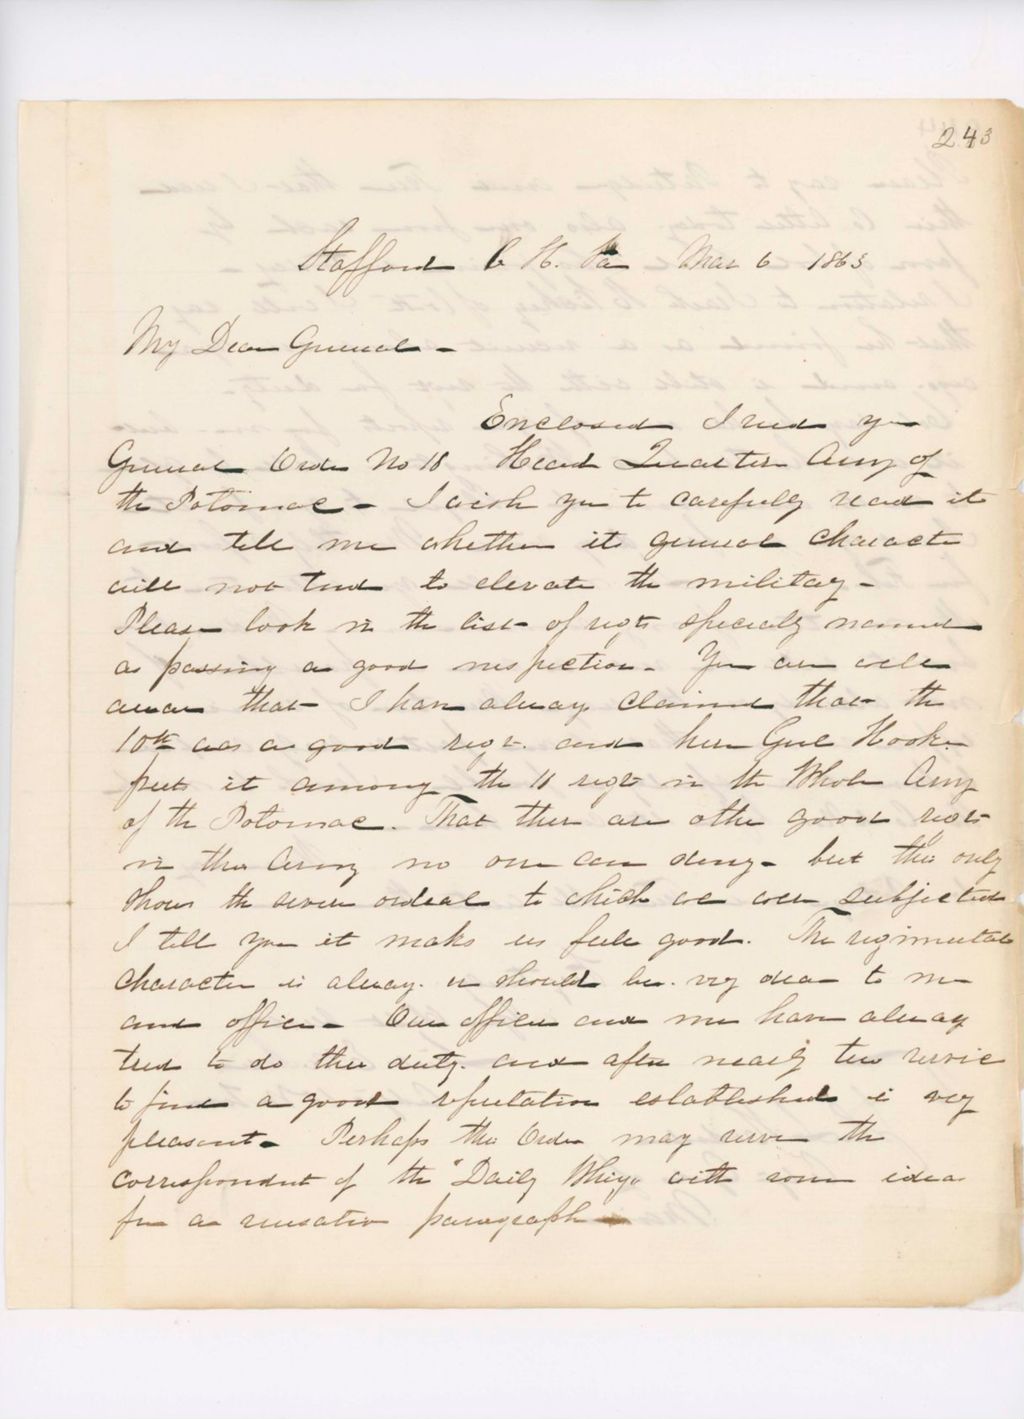 243
Stafford C H. Va Mar 6 1863
My Dear General -
Enclosed I send you
General Order No 18 Head Quarters Army of
the Potomac - I wish you to carefully read it
and tell me whether its general character
will not tend to elevate the military -
Please look in the list of regts specially named
as passing a good inspection - You are well
aware that I have always claimed that the
10th was a good regt. and here Genl Hooker
puts it among the 11 regts in the Whole Army
of the Potomac. That there are other good regts
in this Army no one can deny - but this only
shows the severe ordeal to which we were subjected
I tell you it makes us feel good. The regimental
character is always or should be very dear to men
and officers - Our officers and men have always
tried to do their duty. and after nearly two service
to find a good reputation established is very
pleasant - Perhaps this Order may serve the
correspondent of the "Daily Whig" with some idea
for a sensation paragraph -